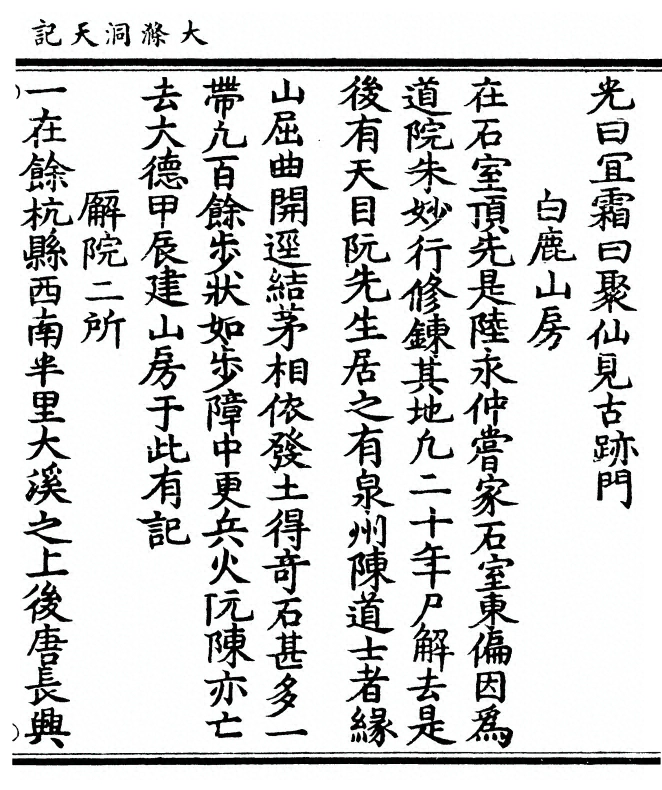 大滌洞天記
光曰冝霜曰聚仙見古跡門
白鹿山房
在石室頂先是陸永仲嘗家石室東偏因爲
道院朱妙行修鍊其地九二十年尸解去是
後有天目阮先生居之有泉州陳道士者緣
山屈曲開逕結茅相依發土得竒石甚多一
帶九百餘步狀如步障中更兵火阮陳亦亡
去大德甲辰建山房于此有記
廨院二所
一在餘杭縣西南半里大溪之上後唐長興